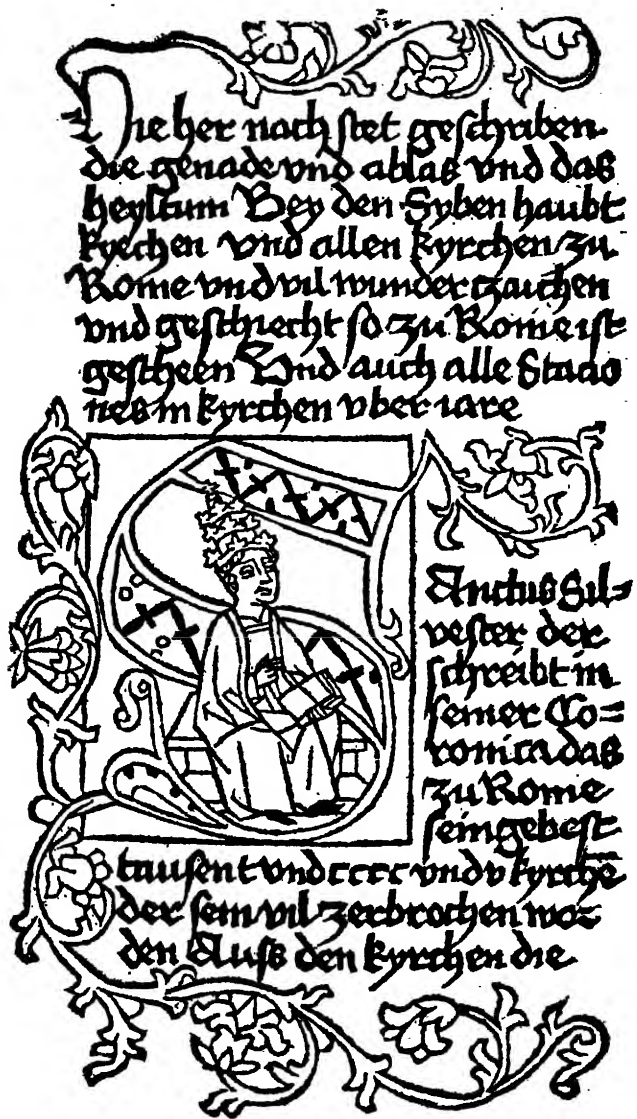 Die her nach stet geschriben
die genade vnd ablas vnd das
heyltum Bey den Syben haubt
kyrchen vnd allen kyrchen zu
Rome vnd vil wunder tzaichen
vnd geschiecht so zu Rome ist
gescheen Vnd auch alle Stacio
nes in kyrchen vber iare
SAnctus Sil=
vester der
schreibt in
seiner Co=
ronica das
zu Rome
sein gebest
tausent vnd cccc vnd v kyrchē
der sein vil zerbrochen wor
den Auß den kyrchen die